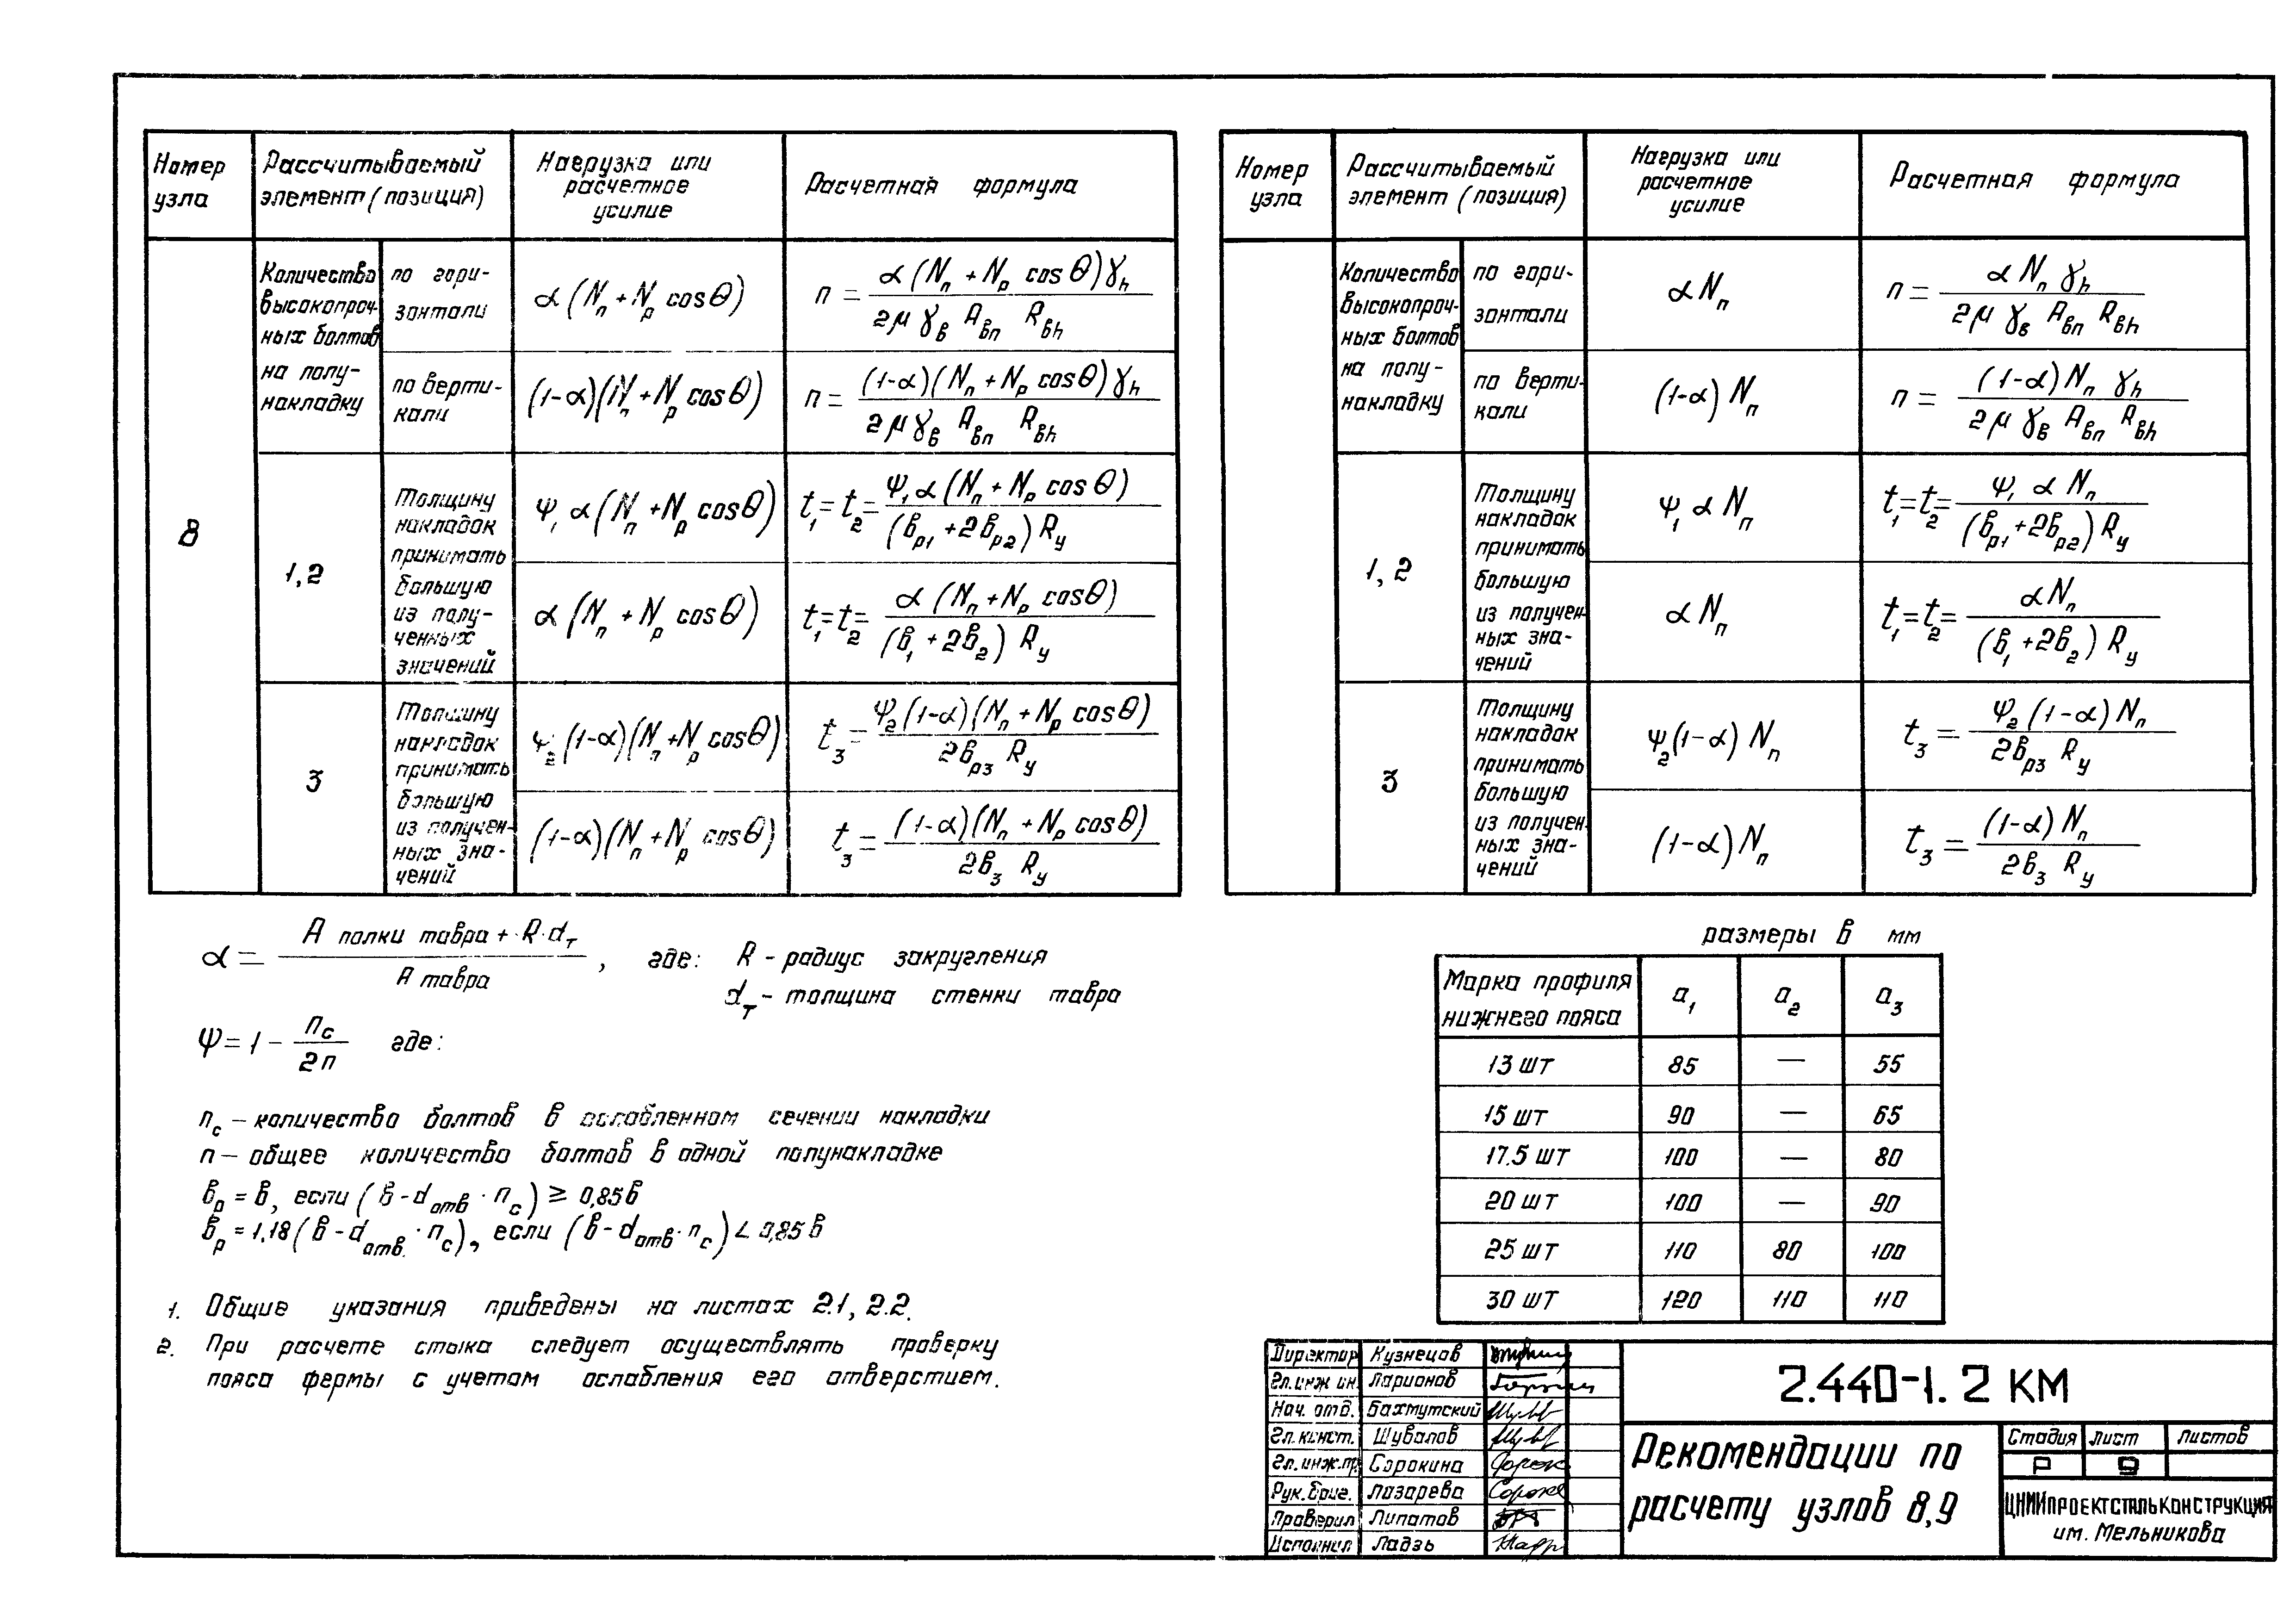 Номер узла
Рассчитываемый элемент (позиция)
Нагрузка или расчетное усилие
Расчетная формула
8
Количество высокопроч-
ных болтов
на полу-
накладку
по гори-
зонтали
α (Nп + Nр cos θ)
n = α (Nп + Nр cos θ) γh / 2μ γв Aвп Rвh
по верти-
кали
(1-α)(Nп + Nр cos θ)
n = (1-α)(Nп + Nр cos θ) γh / 2μ γв Aвп Rвh
1,2
Толщину
накладок
принимать
большую
из полу-
ченных
значений
ψ1 α (Nп + Nр cos θ)
t1 = t2 = ψ1 α (Nп + Nр cos θ) / (вр1 + 2вр2) Rу
α (Nп + Nр cos θ)
t1 = t2 = α (Nп + Nр cos θ) / (в1 + 2в2) Rу
3
Толщину
накладок
принимать
большую
из получен-
ных зна-
чений
ψ2 (1-α)(Nп + Nр cos θ)
t3 = ψ2 (1-α)(Nп + Nр cos θ) / 2вр3 Rу
(1-α)(Nп + Nр cos θ)
t3 = (1-α)(Nп + Nр cos θ) / 2в3 Rу
Номер узла
Рассчитываемый элемент (позиция)
Нагрузка или расчетное усилие
Расчетная формула
Количество
высокопроч-
ных болтов
на полу-
накладку
по гори-
зонтали
α Nп
n = α Nп γh / 2μ γв Aвп Rвh
по верти-
кали
(1-α) Nп
n = (1-α) Nп γh / 2μ γв Aвп Rвh
1,2
Толщину
накладок
принимать
большую
из получен-
ных зна-
чений
ψ1 α Nп
t1 = t2 = ψ1 α Nп / (вр1 + 2вр2) Rу
α Nп
t1 = t2 = α Nп / (в1 + 2в2) Rу
3
Толщину
накладок
принимать
большую
из получен-
ных зна-
чений
ψ2 (1-α) Nп
t3 = ψ2 (1-α) Nп / 2вр3 Rу
(1-α) Nп
t3 = (1-α) Nп / 2в3 Rу
α = A полки тавра + R·dт / A тавра , где: R - радиус закругления
dт - толщина стенки тавра
ψ = 1 - nс / 2n где:
nс - количество болтов в ослабленном сечении накладки
n - общее количество болтов в одной полунакладке
вр = в, если (в - dотв · nс) ≥ 0,85в
вр = 1.18 (в - dотв. · nс), если (в - dотв · nс) < 0,85в
1. Общие указания приведены на листах 2.1, 2.2.
2. При расчете стыка следует осуществлять проверку
пояса фермы с учетом ослабления его отверстием.
размеры в мм
Марка профиля нижнего пояса a1 a2 a3
13 шт 85 — 55
15 шт 90 — 65
17.5 шт 100 — 80
20 шт 100 — 90
25 шт 110 80 100
30 шт 120 110 110
Директор Кузнецов
Гл. инж ин. Ларионов
Нач. отд. Бахмутский
Гл. конст. Шувалов
Гл. инж. пр. Сорокина
Рук. бриг. Лазарева
Проверил Липатов
Исполнил Ладзь
2.440-1.2 КМ
Рекомендации по
расчету узлов 8,9
Стадия Лист Листов
Р 9
ЦНИИПРОЕКТСТАЛЬКОНСТРУКЦИЯ
им. Мельникова